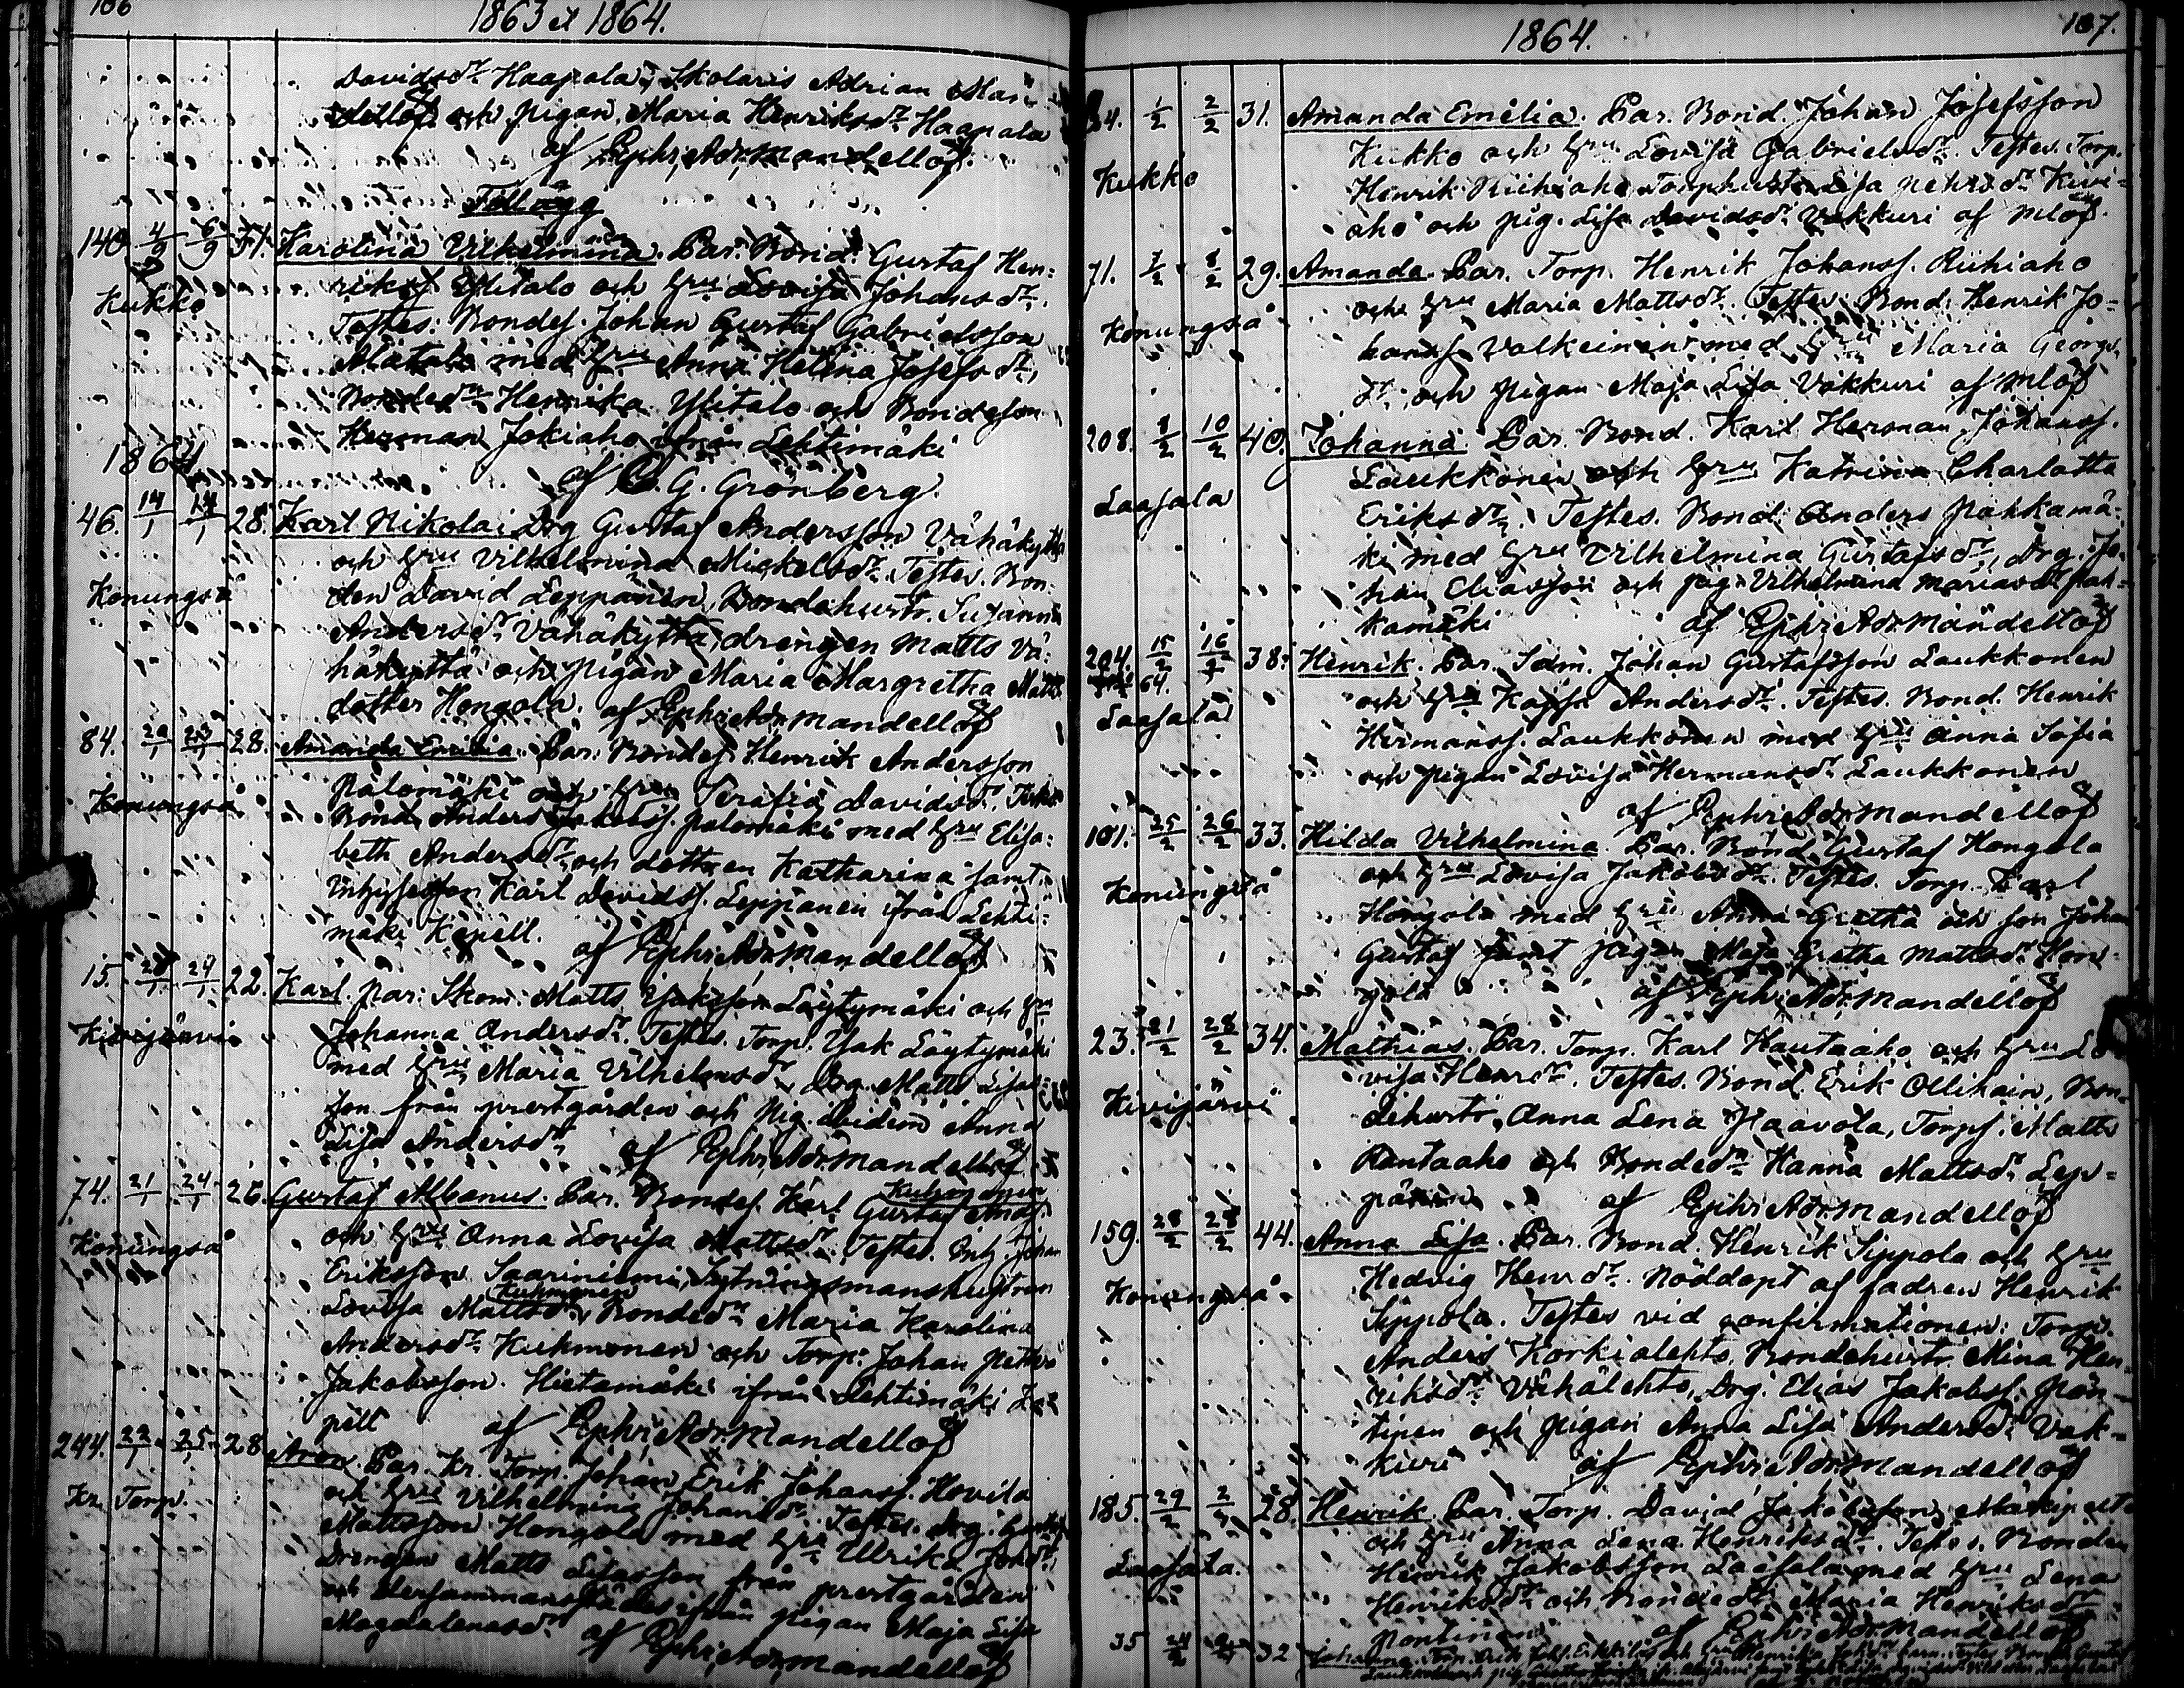 106
1863 et 1864.
Davidsdr Haapala, Skolaris Adrian Man-
dellöf och pigan Maria Henriksdr Haapala
af Ephr. Adr. Mandellöf.
Tillägg
140 4/9 6/9 31. Karolina Vilhelmina. Par. Bond. Gustaf Hen-
rikss. Ylitalo och hru Lovisa Johansdr.
Kukko
Testes: Bondes. Johan Gustaf Gabrielsson
Mätalo med hru Anna Helena Josefsdr,
Bondedr Henrika Ylitalo och Bondeson
Herman Jokiaho ifrån Lehtimäki
1864
af C. G. Grönberg.
46. 14/1 14/1 28. Karl Nikolai Drg Gustaf Andersson Vähäkyttä
och hru Vilhelmina Mickelsdr. Testes. Bon-
Konungså
den David Leppänen, Bondehustr. Susanna
Andersdr Vähäkyttä, drengen Matts Vä-
häkyttä och pigan Maria Margretha Matts
dotter Hongola. af Ephr. Adr. Mandellöf
84. 20/1 23/1 28. Amanda Emilia. Par. Bondes. Henrik Andersson
Palomäki och hru Serafia Davidsdr. Testes
Konungså
Bond. Anders Jakobss. Palomäki med hru Elisa-
beth Andersdr och dottren Katharina samt
Inhysesson Karl Davidss. Leppänen ifrån Lehti-
mäki Kapell.
af Ephr. Adr. Mandellöf
15. 20/1 24/1 22. Karl. Par: Skom. Matts Isaksson Löytymäki och hru
Johanna Andersdr. Testes. Torp. Isak Löytymäki
Kivijärvi
med hru Maria Vilhelmsdr, Drg. Matts Lisas-
son från prestgården och Pig. ibidem Anna
Lisa Andersdr
af Ephr. Adr. Mandellöf
74. 21/1 24/1 26. Gustaf Albanus. Par. Bondes. Karl Gustaf Andss. Kuhmonen
och hru Anna Lovisa Mattsdr. Testes. Inh. Johan
Konungså
Eriksson Saariniemi, Sytningsmanshustrun
Lovisa Mattsdr Kuhmonen, Bondedr Maria Karolina
Andersdr Kuhmonen och Torp. Johan Petter
Jakobsson Hietamäki ifrån Lehtimäki Ka-
pell
af Ephr. Adr. Mandellöf
244. 22/1 25/1 28 Aron Par. Kr. Torp. Johan Erik Johanss. Hovila
och hru Vilhelmina Johansdr. Testes. Drg. Gustaf
Kr. Torp.
Mattsson Hongola med hru Ulrika Johsdr,
Drengen Matts Lisasson från prestgården
och dersammanstädes ifrån pigan Maja Lisa
Magdalenasdr
af Ephr. Adr. Mandellöf
1864.
107.
34. 1/2 2/2 31. Amanda Emelia. Par. Bond. Johan Josefsson
Kukko och hru Lovisa Gabrielsdr. Testes. Torp.
Kukko
Henrik Riihiaho Torphustr. Lisa Pehrsdr Kivi-
aho och pig. Lisa Davidsdr Vakkuri af Mlöf.
71. 7/2 8/2 29. Amanda. Par. Torp. Henrik Johanss. Riihiaho
och hru Maria Mattsdr. Testes. Bond. Henrik Jo-
Konungså
hanss. Valkeinen med hru Maria Georgs-
dr och pigan Maja Lisa Vakkuri af Mlöf
208. 8/2 10/2 40. Johanna. Par. Bond. Karl Herman Johanss.
Laukkonen och hru Katrina Charlotta
Laasala
Eriksdr. Testes. Bond. Anders Pahkamä-
ki med hru Vilhelmina Gustafsdr, Drg. Jo-
han Eliasson och pig. Vilhelmina Mariasdr Pah-
kamäki
af Ephr. Adr. Mandellöf
204. 15/2 16/2 38. Henrik. Par. Johan Gustafsson Laukkonen
64.
och hru Kajsa Andersdr. Testes. Bond. Henrik
Laasala
Hermanss. Laukkonen med hru Anna Sofia
och pigan Lovisa Hermansdr Laukkonen
af Ephr. Adr. Mandellöf
101. 25/2 26/2 33. Hilda Vilhelmina. Par. Bond. Gustaf Hongola
och hru Lovisa Jakobsdr. Testes. Torp. Karl
Konungså
Hongola med hru Anna Gretha och son Johan
Gustaf samt pigan Maja Gretha Mattsdr Hon-
gola
af Ephr. Adr. Mandellöf
23. 21/2 28/2 34. Mathias. Par. Torp. Karl Hautaaho och hru Lo-
visa Henrdr. Testes. Bond. Erik Ollikain, Bon-
Kivijärvi
dehustr. Anna Lena Paavola, Torps. Matts
Rantaaho och Bondedr Hanna Mattsdr Lep-
pänen
af Ephr. Adr. Mandellöf
159. 28/2 28/2 44. Anna Lisa. Par. Bond. Henrik Sippola och hru
Hedvig Henrdr. Nöddöpt af fadren Henrik
Konungså
Sippola. Testes vid confirmationen: Torp.
Anders Korkialehto, Bondehustr. Mina Hen-
riksdr Vähälehto, Drg. Elias Jakobss. Pön-
tinen och pigan Anna Lisa Andersdr Vak-
kuri
af Ephr. Adr. Mandellöf
185. 29/2 28. Henrik. Par. Torp. David Jakobsson Mäkipelto
och hru Anna Lena Henriksdr. Testes. Bonden
Laasala.
Henrik Jakobsson Laasala med hru Lena
Henriksdr och Bondedr Maria Henriksdr
Pöntinen
af Ephr. Adr. Mandellöf
35 24/2 32 Johanna.